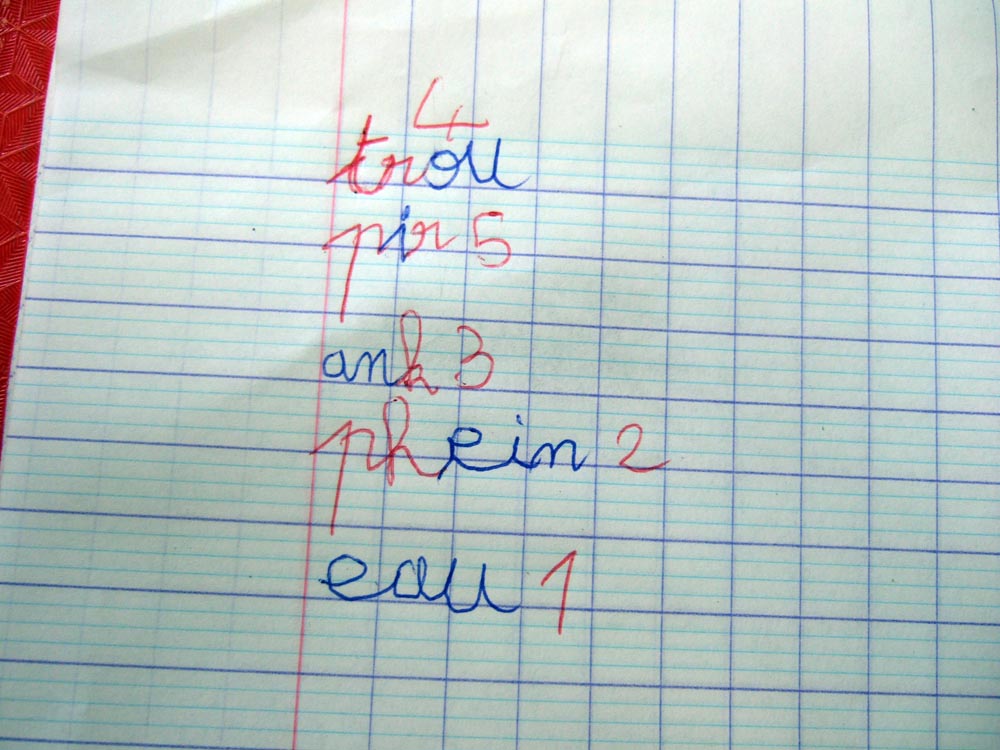 4
trou
pir 5
ank 3
phein 2
eau 1